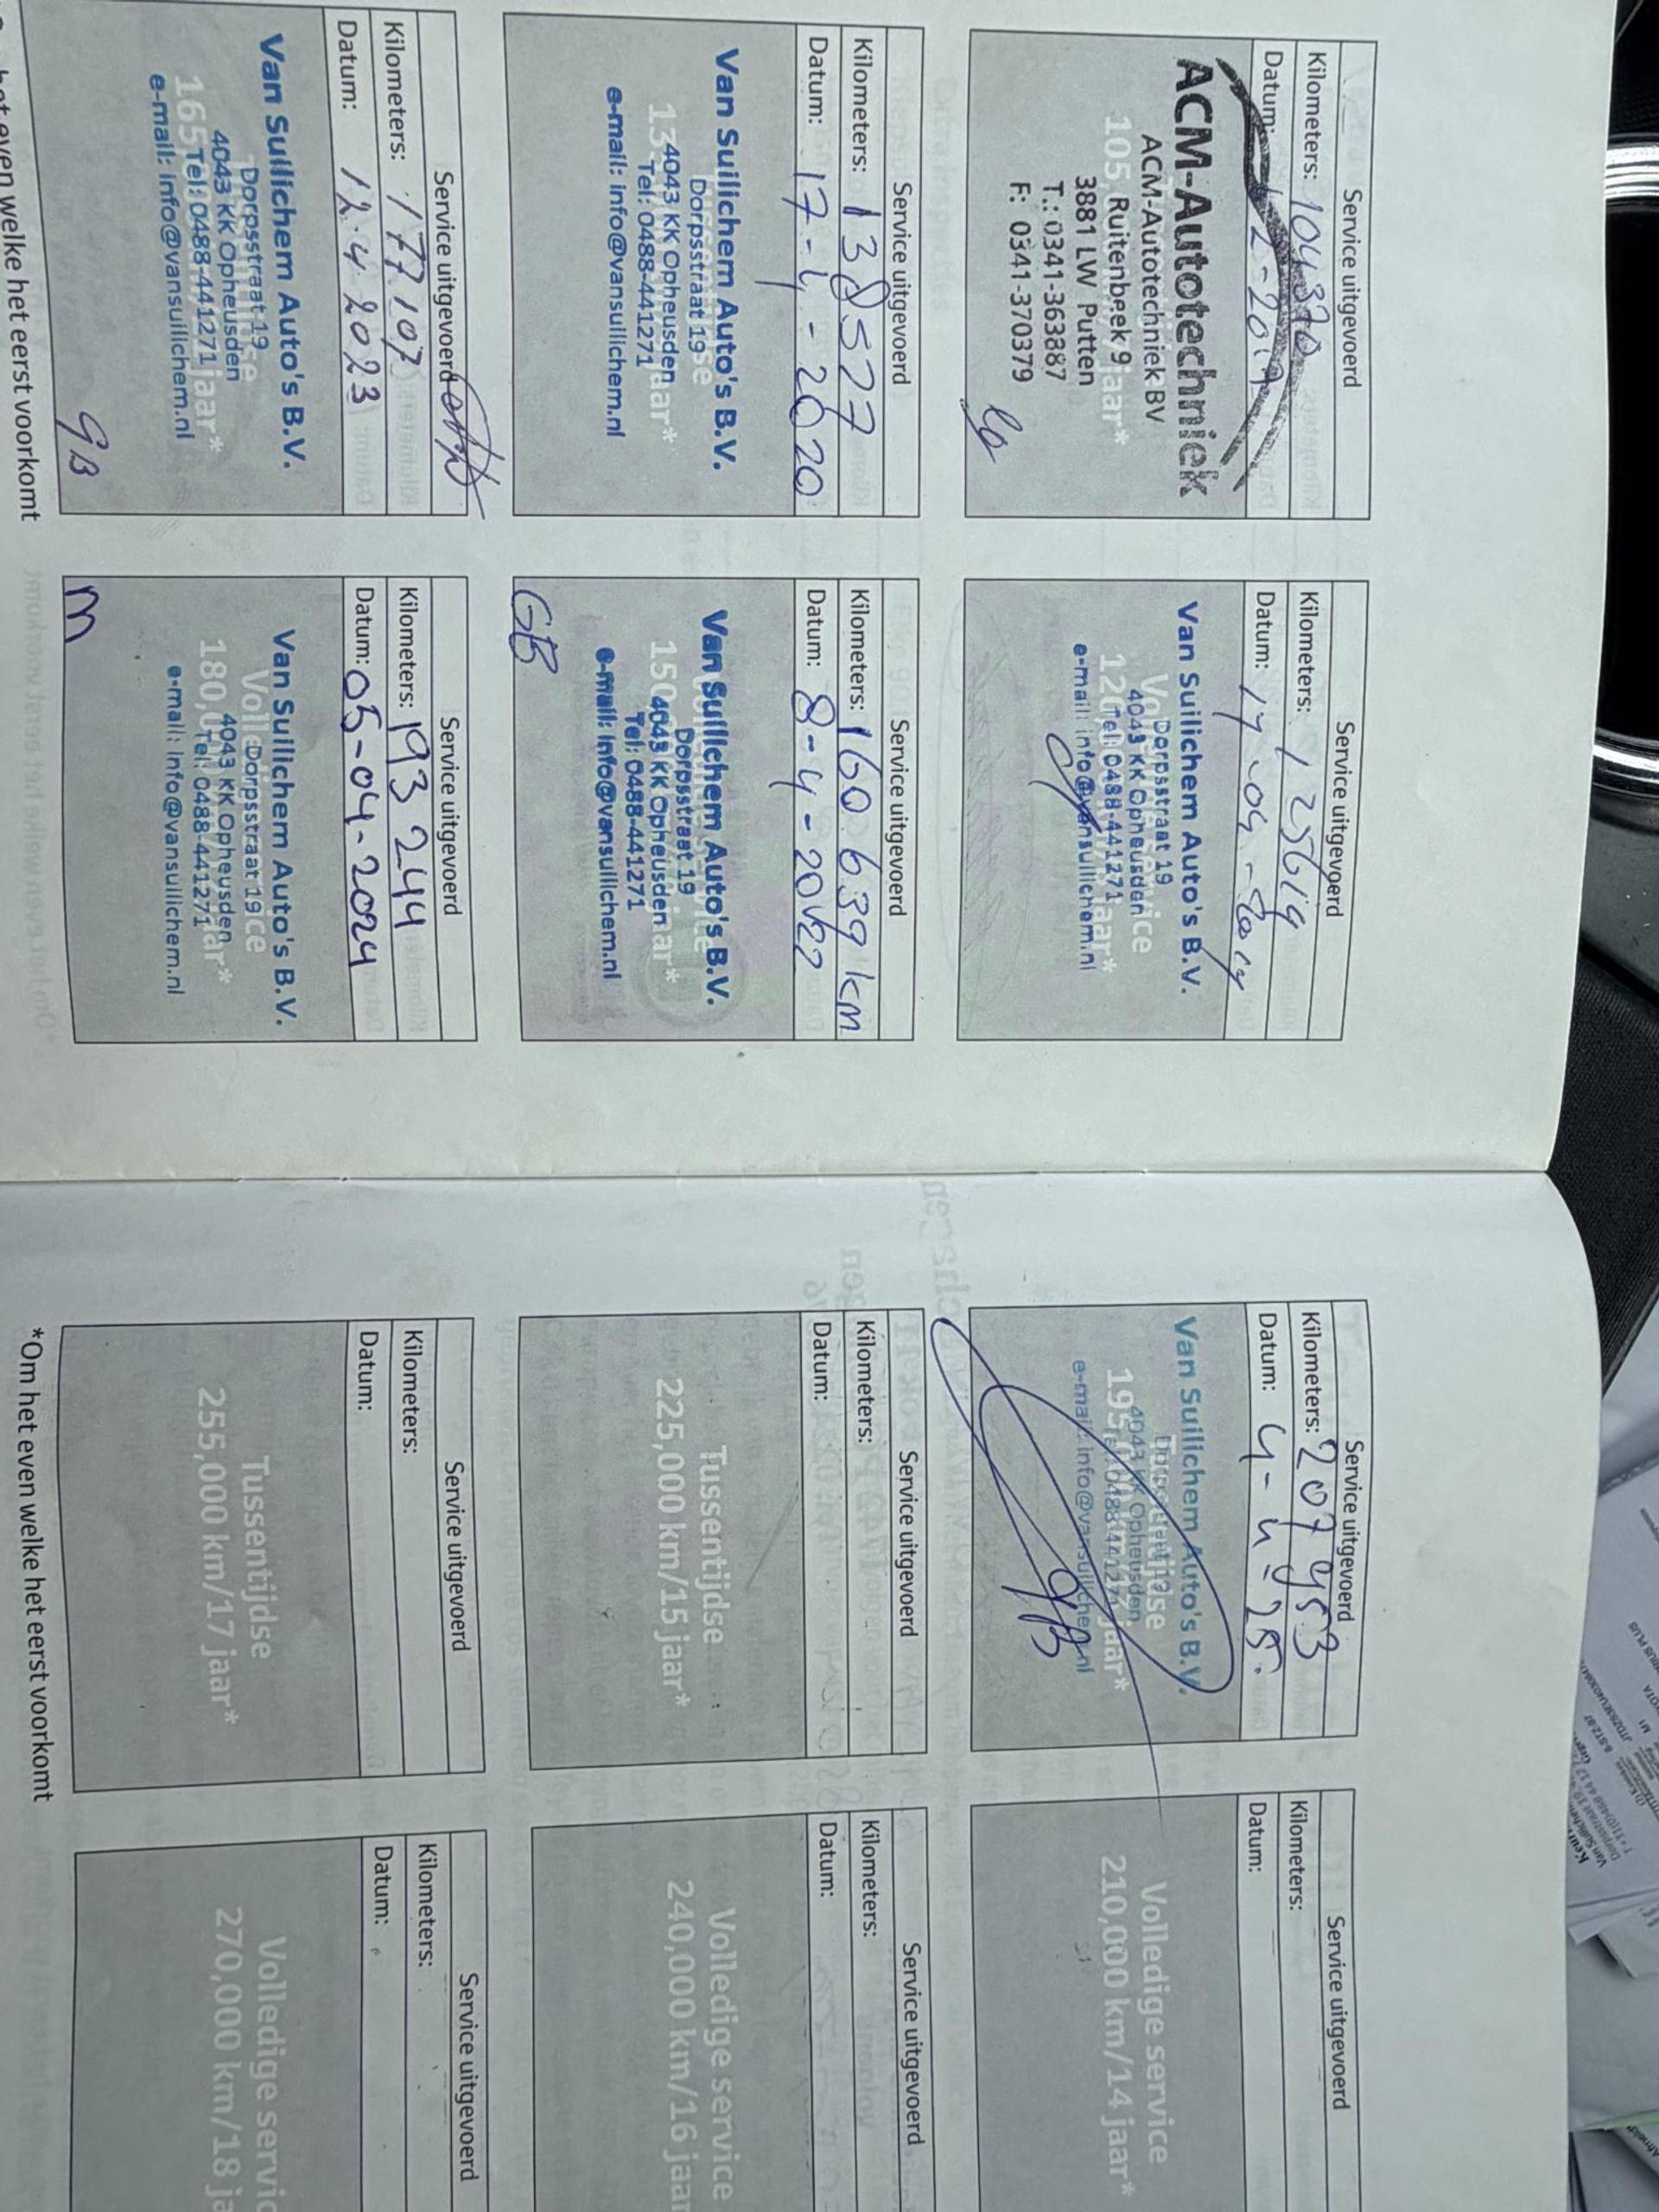 Service uitgevoerd
Kilometers: 104370
Datum: 2-2019
ACM-Autotechniek
ACM-Autotechniek BV
105, Ruitenbeek 9 jaar*
3881 LW Putten
T.: 0341-363887
F: 0341-370379
Service uitgevoerd
Kilometers: 125614
Datum: 17-04-
Van Suilichem Auto's B.V.
Dorpsstraat 19
4043 KK Opheusden
Tel: 0488-441271
e-mail: info@vansuilichem.nl
Service uitgevoerd
Kilometers: 138527
Datum: 17-4-2020
Van Suilichem Auto's B.V.
Dorpsstraat 19
4043 KK Opheusden
Tel: 0488-441271
e-mail: info@vansuilichem.nl
Service uitgevoerd
Kilometers: 160.639 km
Datum: 8-4-2022
Van Suilichem Auto's B.V.
Dorpsstraat 19
4043 KK Opheusden
Tel: 0488-441271
e-mail: info@vansuilichem.nl
GB
Service uitgevoerd
Kilometers: 177107
Datum: 12.4.2023
Van Suilichem Auto's B.V.
Dorpsstraat 19
4043 KK Opheusden
Tel: 0488-441271
e-mail: info@vansuilichem.nl
GB
Service uitgevoerd
Kilometers: 193 244
Datum: 05-04-2024
Van Suilichem Auto's B.V.
Dorpsstraat 19
4043 KK Opheusden
Tel: 0488-441271
e-mail: info@vansuilichem.nl
m
het even welke het eerst voorkomt
Service uitgevoerd
Kilometers: 207953
Datum: 4-4-25.
Van Suilichem Auto's B.V.
Dorpsstraat 19
4043 KK Opheusden
Tel: 0488-441271
e-mail: info@vansuilichem.nl
GB
Service uitgevoerd
Kilometers:
Datum:
Volledige service
210,000 km/14 jaar*
Service uitgevoerd
Kilometers:
Datum:
Tussentijdse
225,000 km/15 jaar*
Service uitgevoerd
Kilometers:
Datum:
Volledige service
240,000 km/16 jaar
Service uitgevoerd
Kilometers:
Datum:
Tussentijdse
255,000 km/17 jaar*
Service uitgevoerd
Kilometers:
Datum:
Volledige servic
270,000 km/18 ja
*Om het even welke het eerst voorkomt